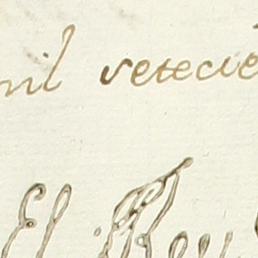 mil setecie
El Rey